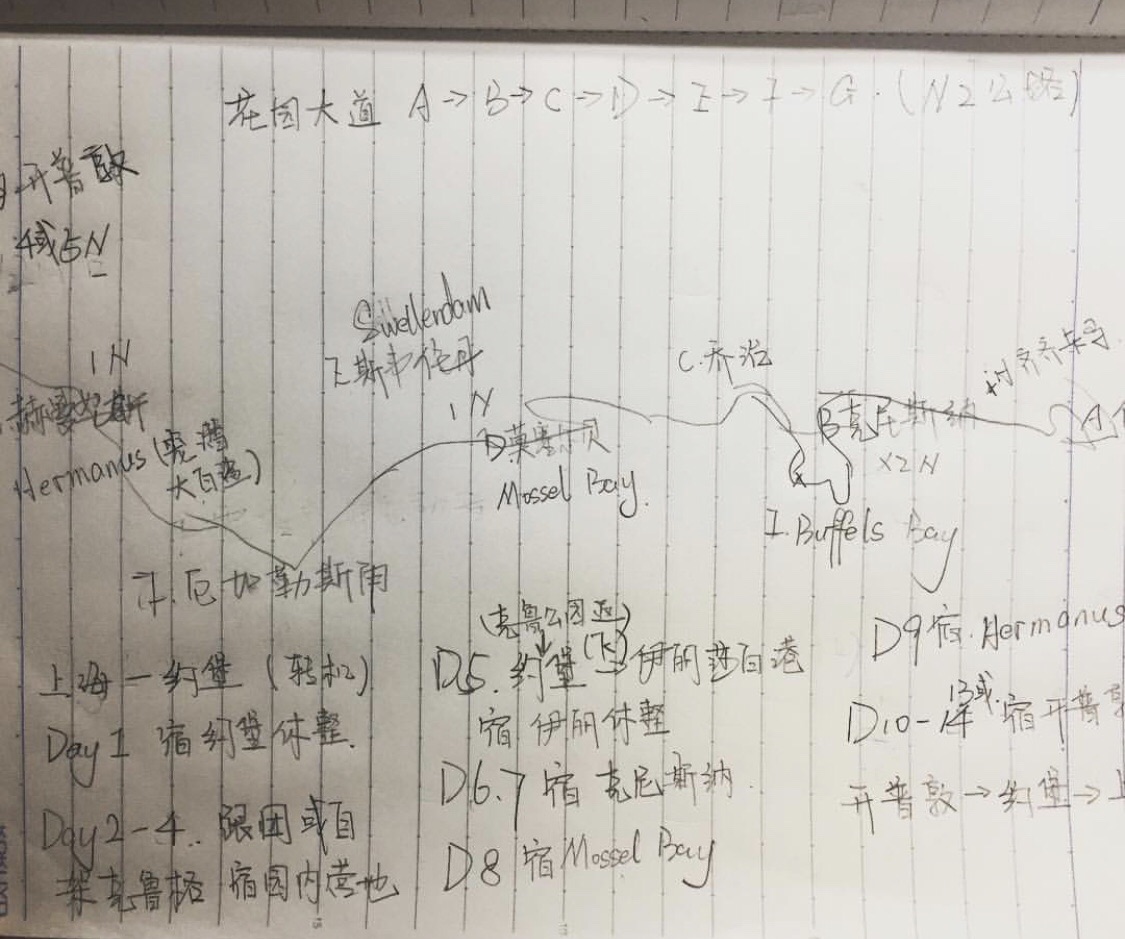 花园大道 A→B→C→D→E→F→G.(N2公路)
开普敦
4或5N
Swellendam
E斯韦伦丹
1N
赫曼努斯
Hermanus (鲨笼
大白鲨)
1N
D莫塞尔贝
Mossel Bay.
C.乔治
B克尼斯纳
×2N
齐齐卡马
A
I.Buffels Bay
F.厄加勒斯角
上海—约堡 (转机)
Day1 宿约堡休整.
Day2-4.. 跟团或自
克鲁格 宿园内营地
(克鲁公园返)
D5.约堡(飞)→伊丽莎白港
宿 伊丽休整
D6.7 宿 克尼斯纳.
D8 宿 Mossel Bay
D9宿.Hermanus
D10-13或14 宿开普敦
开普敦→约堡→上